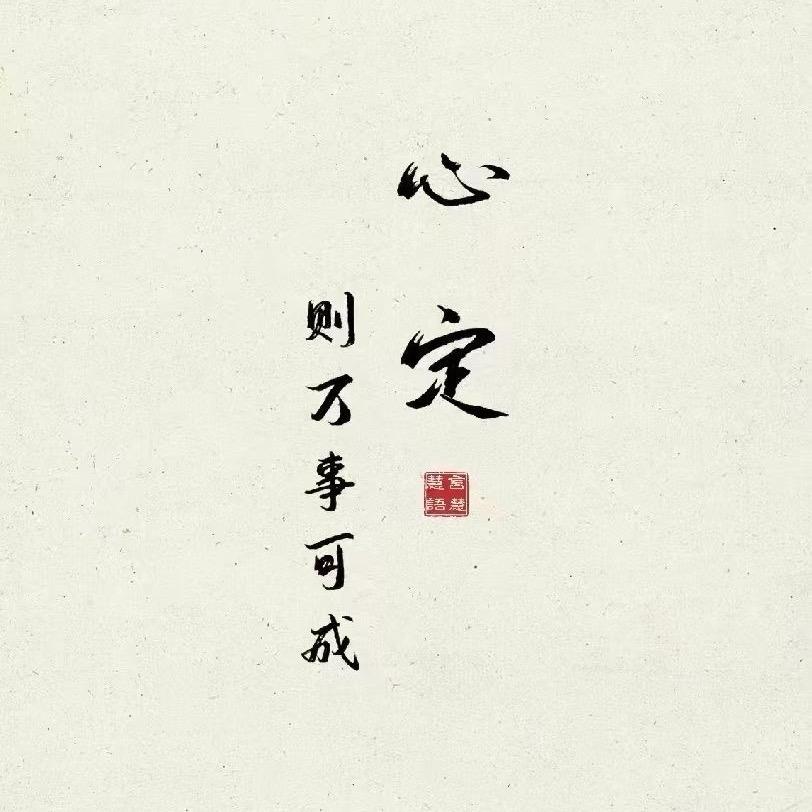 心定
则万事可成
言慧
慧語